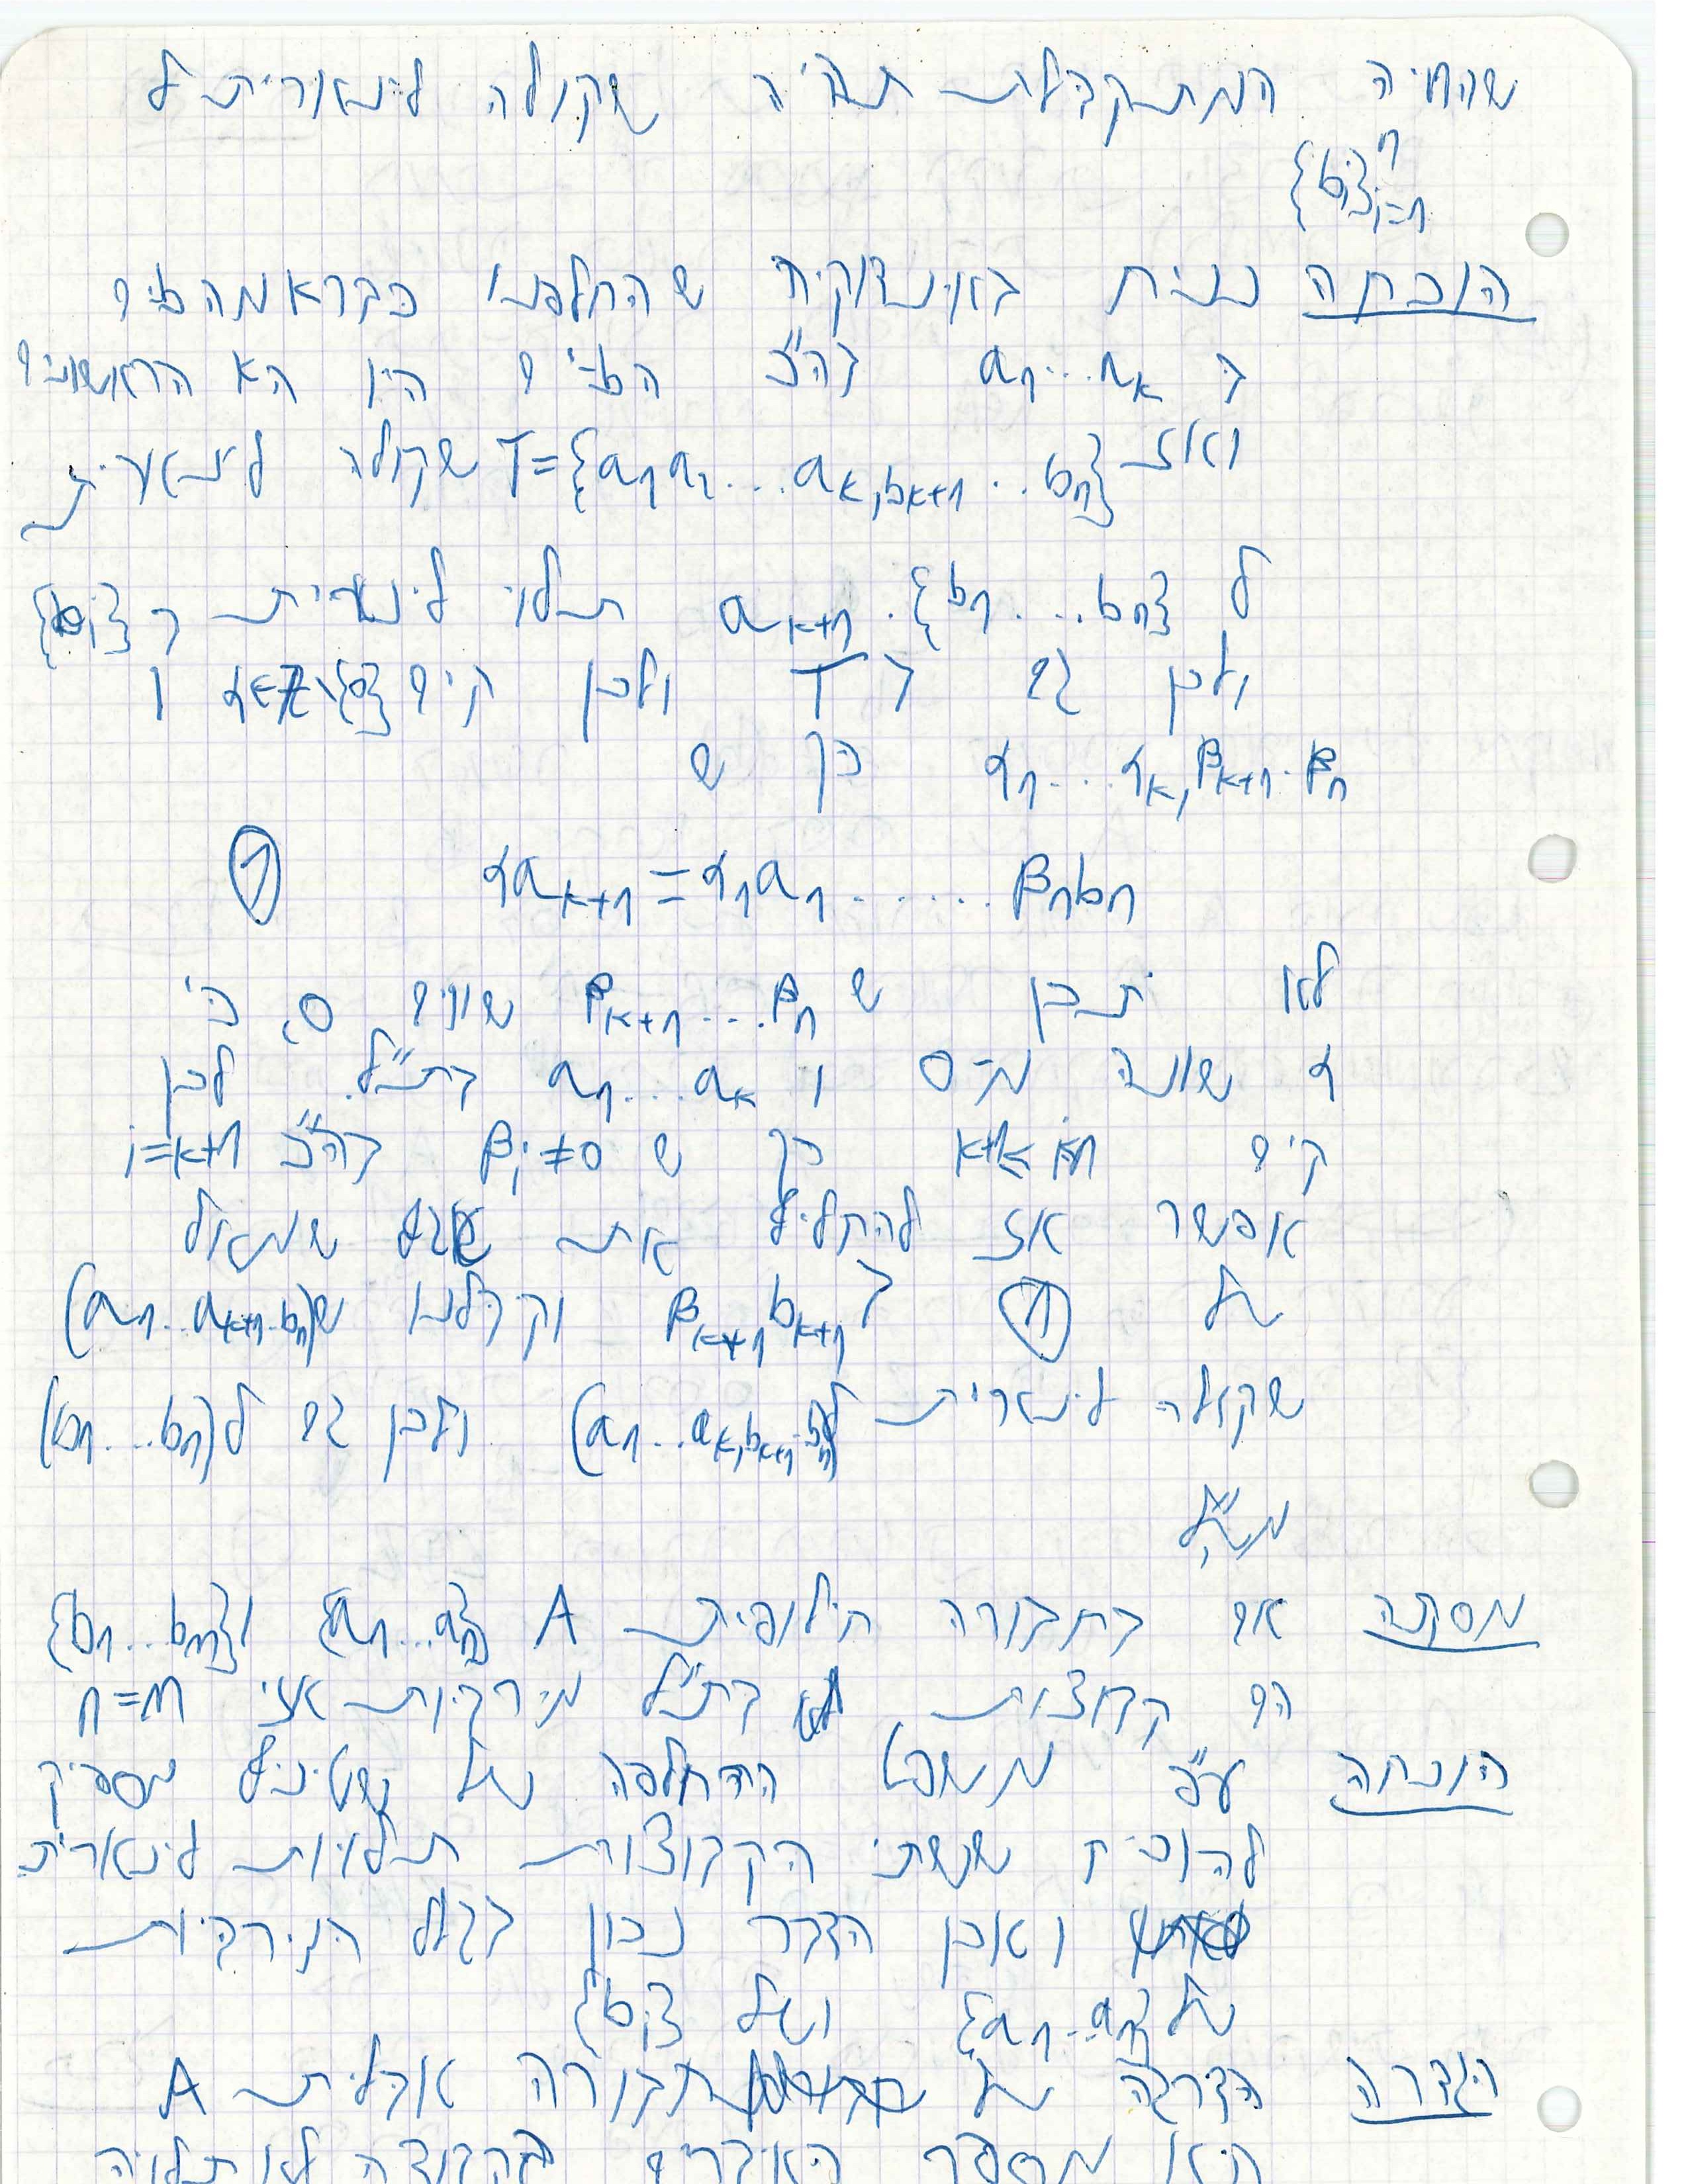 שהחיה המתקבלת תהיה שקולה לינארית ל
{bi}ⁿi=1
הוכחה נניח באינדוקציה שהחלפנו כבר k מה bים
ב a1...ak בה"כ ה bים היו ה k הראשונים
ואז T={a1a2...ak,bk+1...bn} שקולה לינארית
ל {b1...bn}. ak+1 תלוי לינארית ב {bi}
ולכן גם ב T ולכן קים α∈Z\{0} ו
α1...αk,βk+1..βn כך ש
αak+1=α1a1......βnbn ①
לא יתכן ש βk+1...βn שוים 0, כי
α שונה מ-0 ו a1...ak בת"ל. לכן
קים k+1≤i≤n כך ש βi≠0 בה"כ i=k+1
אפשר אז להחליף את אגף שמאל
של ① ב βk+1bk+1 וקבלנו ש (a1...ak+1..bn)
שקולה לינארית ל (a1...ak,bk+1..bn) ולכן גם ל (b1...bn)
מש"ל
מסקנה אם בחבורה חילופית A {a1...an} ו {b1...bm}
הם קבוצות בת"ל מירביות אזי n=m
הוכחה ע"פ משפט ההחלפה של שטיניץ מספיק
להוכיח ששתי הקבוצות תלויות לינארית
ואכן הדבר נכון בגלל המירביות
של {a1...an} ושל {bi}
הגדרה הדרגה של חבורה אבלית A
היא מספר האיברים בקבוצה לא תלויה